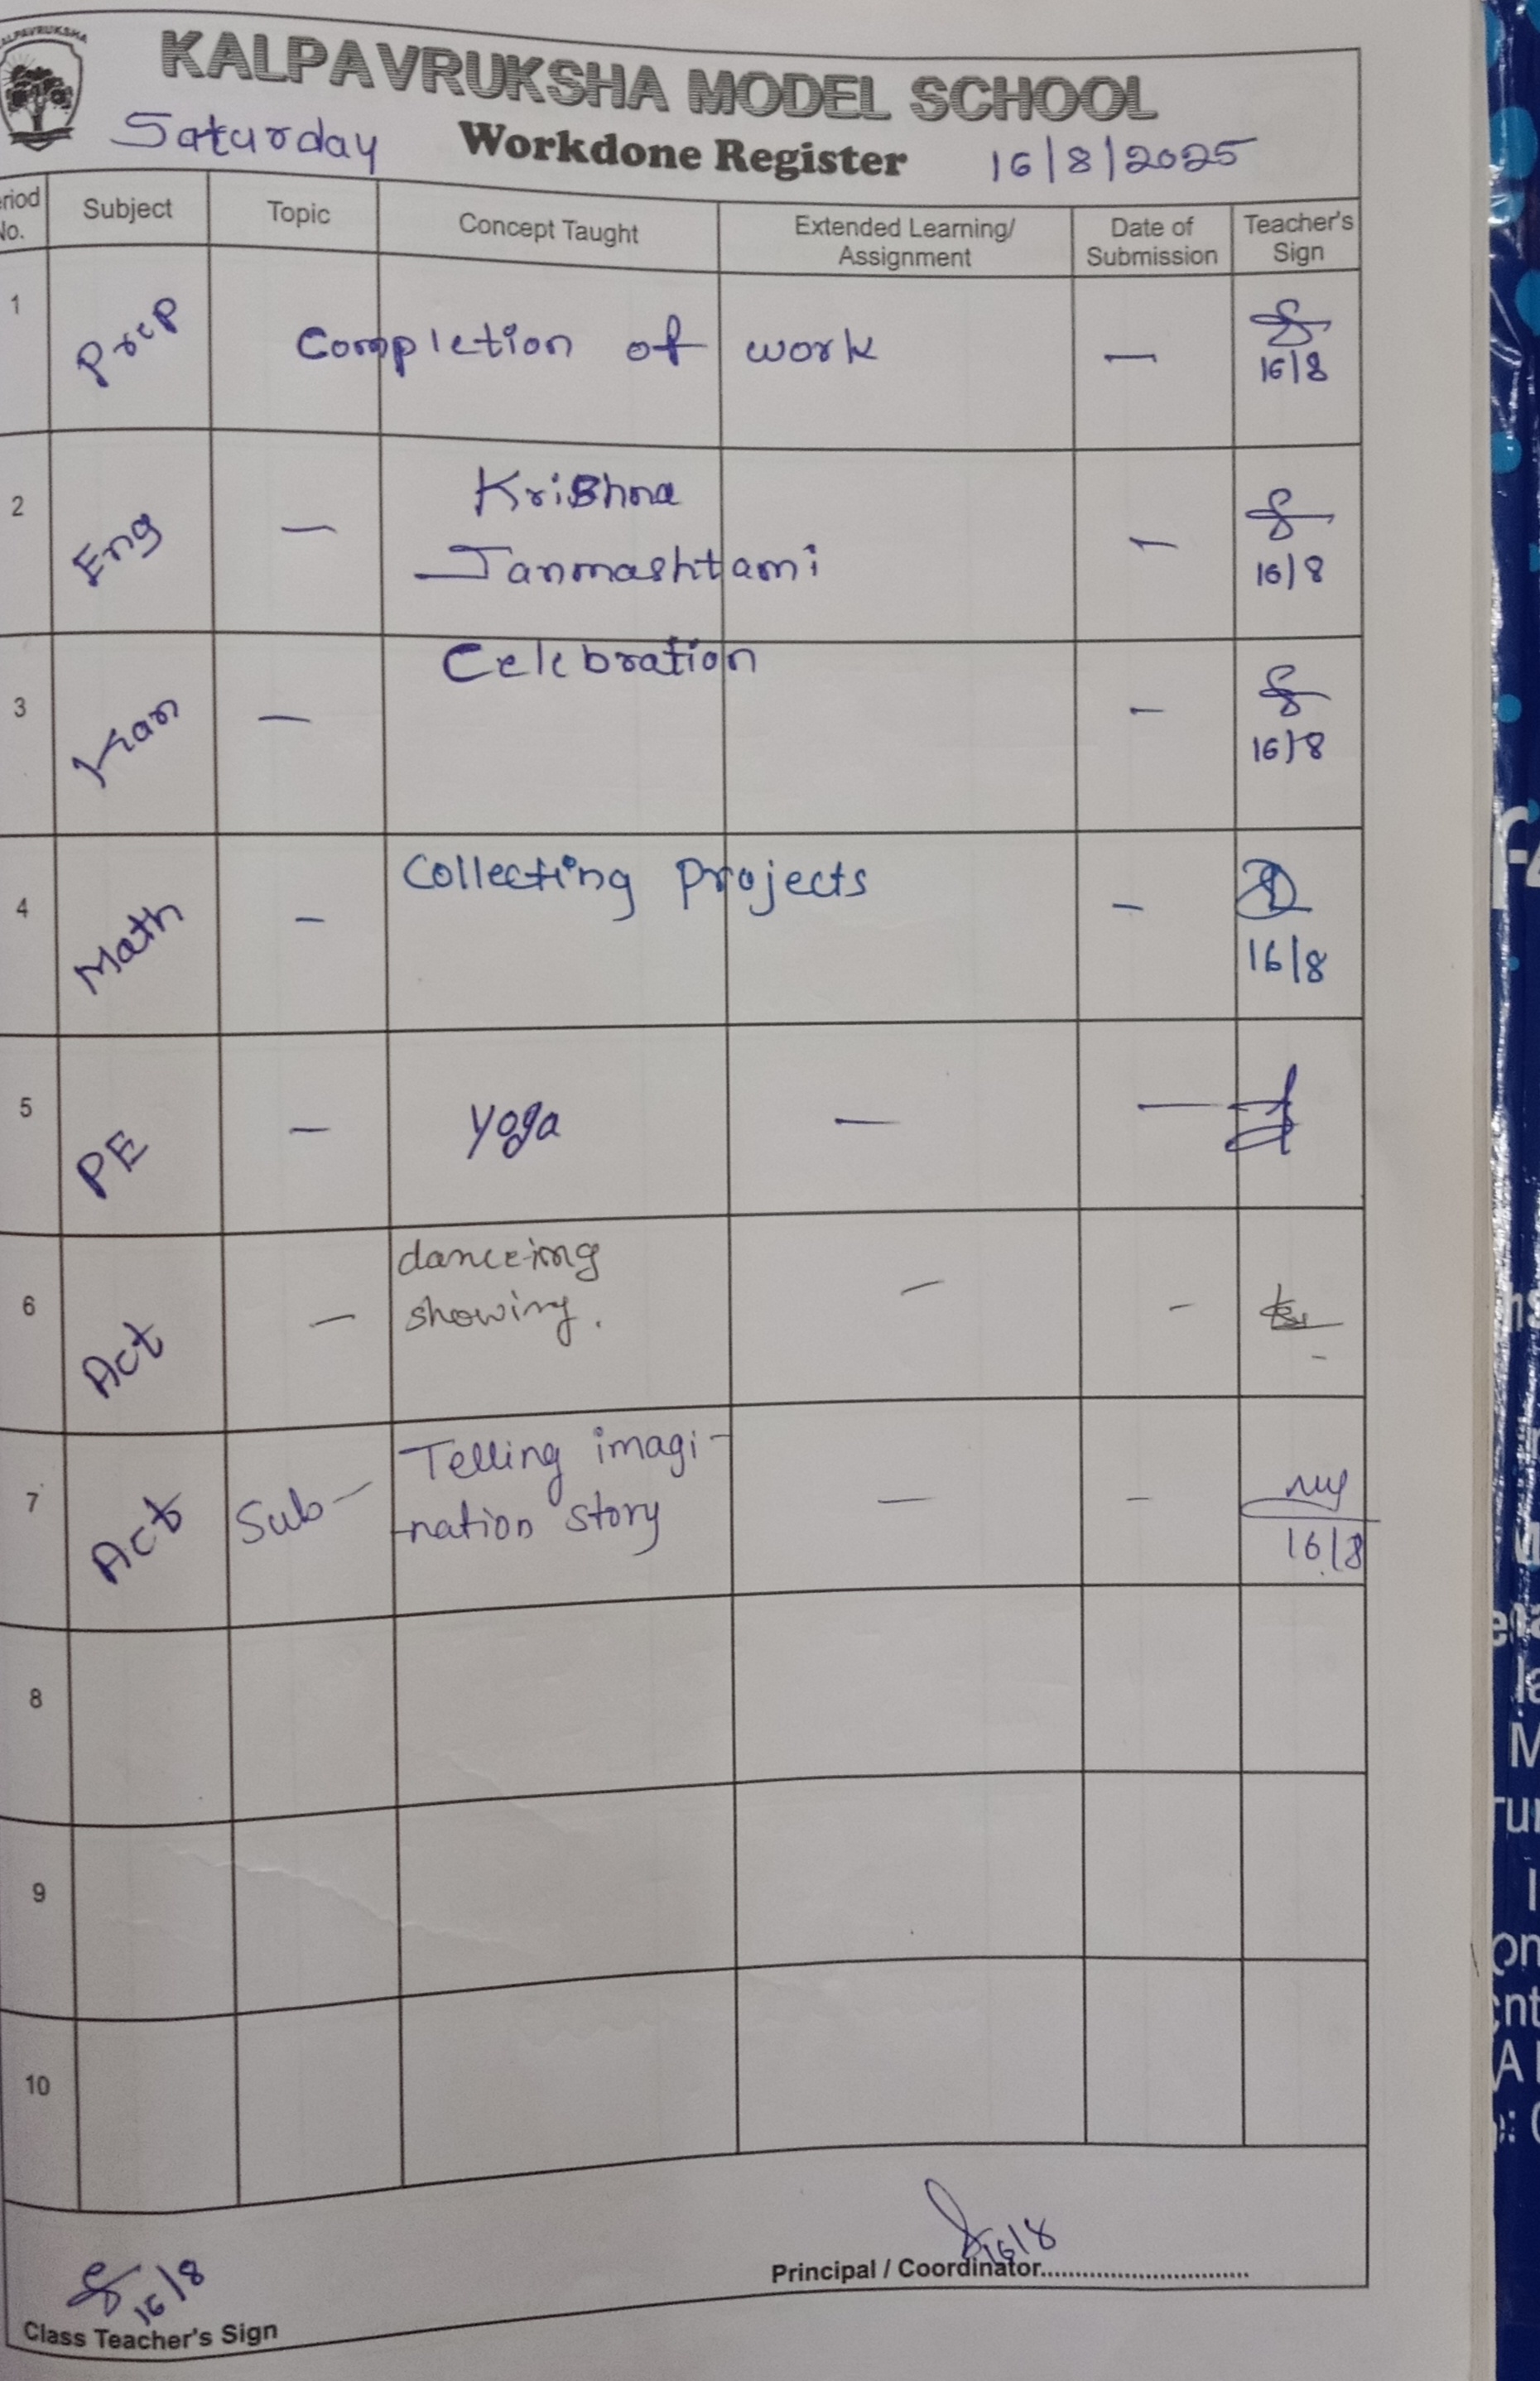 KALPAVRUKSHA
KALPAVRUKSHA MODEL SCHOOL
Saturday Workdone Register 16/8/2025
Period No. Subject Topic Concept Taught Extended Learning/ Assignment Date of Submission Teacher's Sign
1 Prep Completion of work — 16/8
2 Eng — Krishna
Janmashtami — 16/8
3 Kan — Celebration — 16/8
4 Math — Collecting Projects — 16/8
5 PE — Yoga — —
6 Act — danceing
showing. — —
7 Act Sub— Telling imagi-
-nation story — — 16/8
8
9
10
16/8
Class Teacher's Sign
16/8
Principal / Coordinator..............................